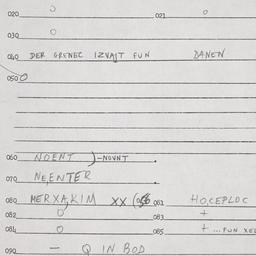 020 O 021 O
030 O
040 DER GRENEC IZVAJT FUN DANEN
050 O
060 NOENT )-NOVNT .
070 NE,ENTER .
080 MERXAKIM XX 081 HO,CEPLOC
082 O 083 +
084 O 085 + ... FUN XEL
090 — Q IN BOD